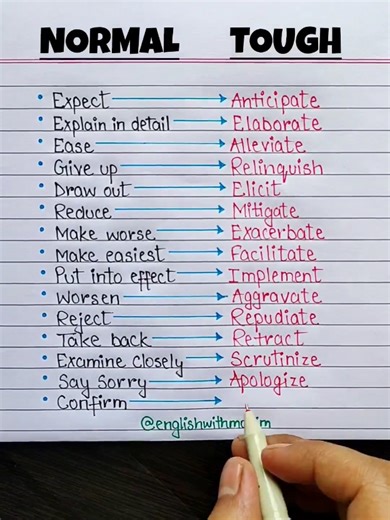 NORMAL TOUGH
• Expect → Anticipate
• Explain in detail → Elaborate
• Ease → Alleviate
• Give up → Relinquish
• Draw out → Elicit
• Reduce → Mitigate
• Make worse → Exacerbate
• Make easiest → Facilitate
• Put into effect → Implement
• Worsen → Aggravate
• Reject → Repudiate
• Take back → Retract
• Examine closely → Scrutinize
• Say Sorry → Apologize
• Confirm →